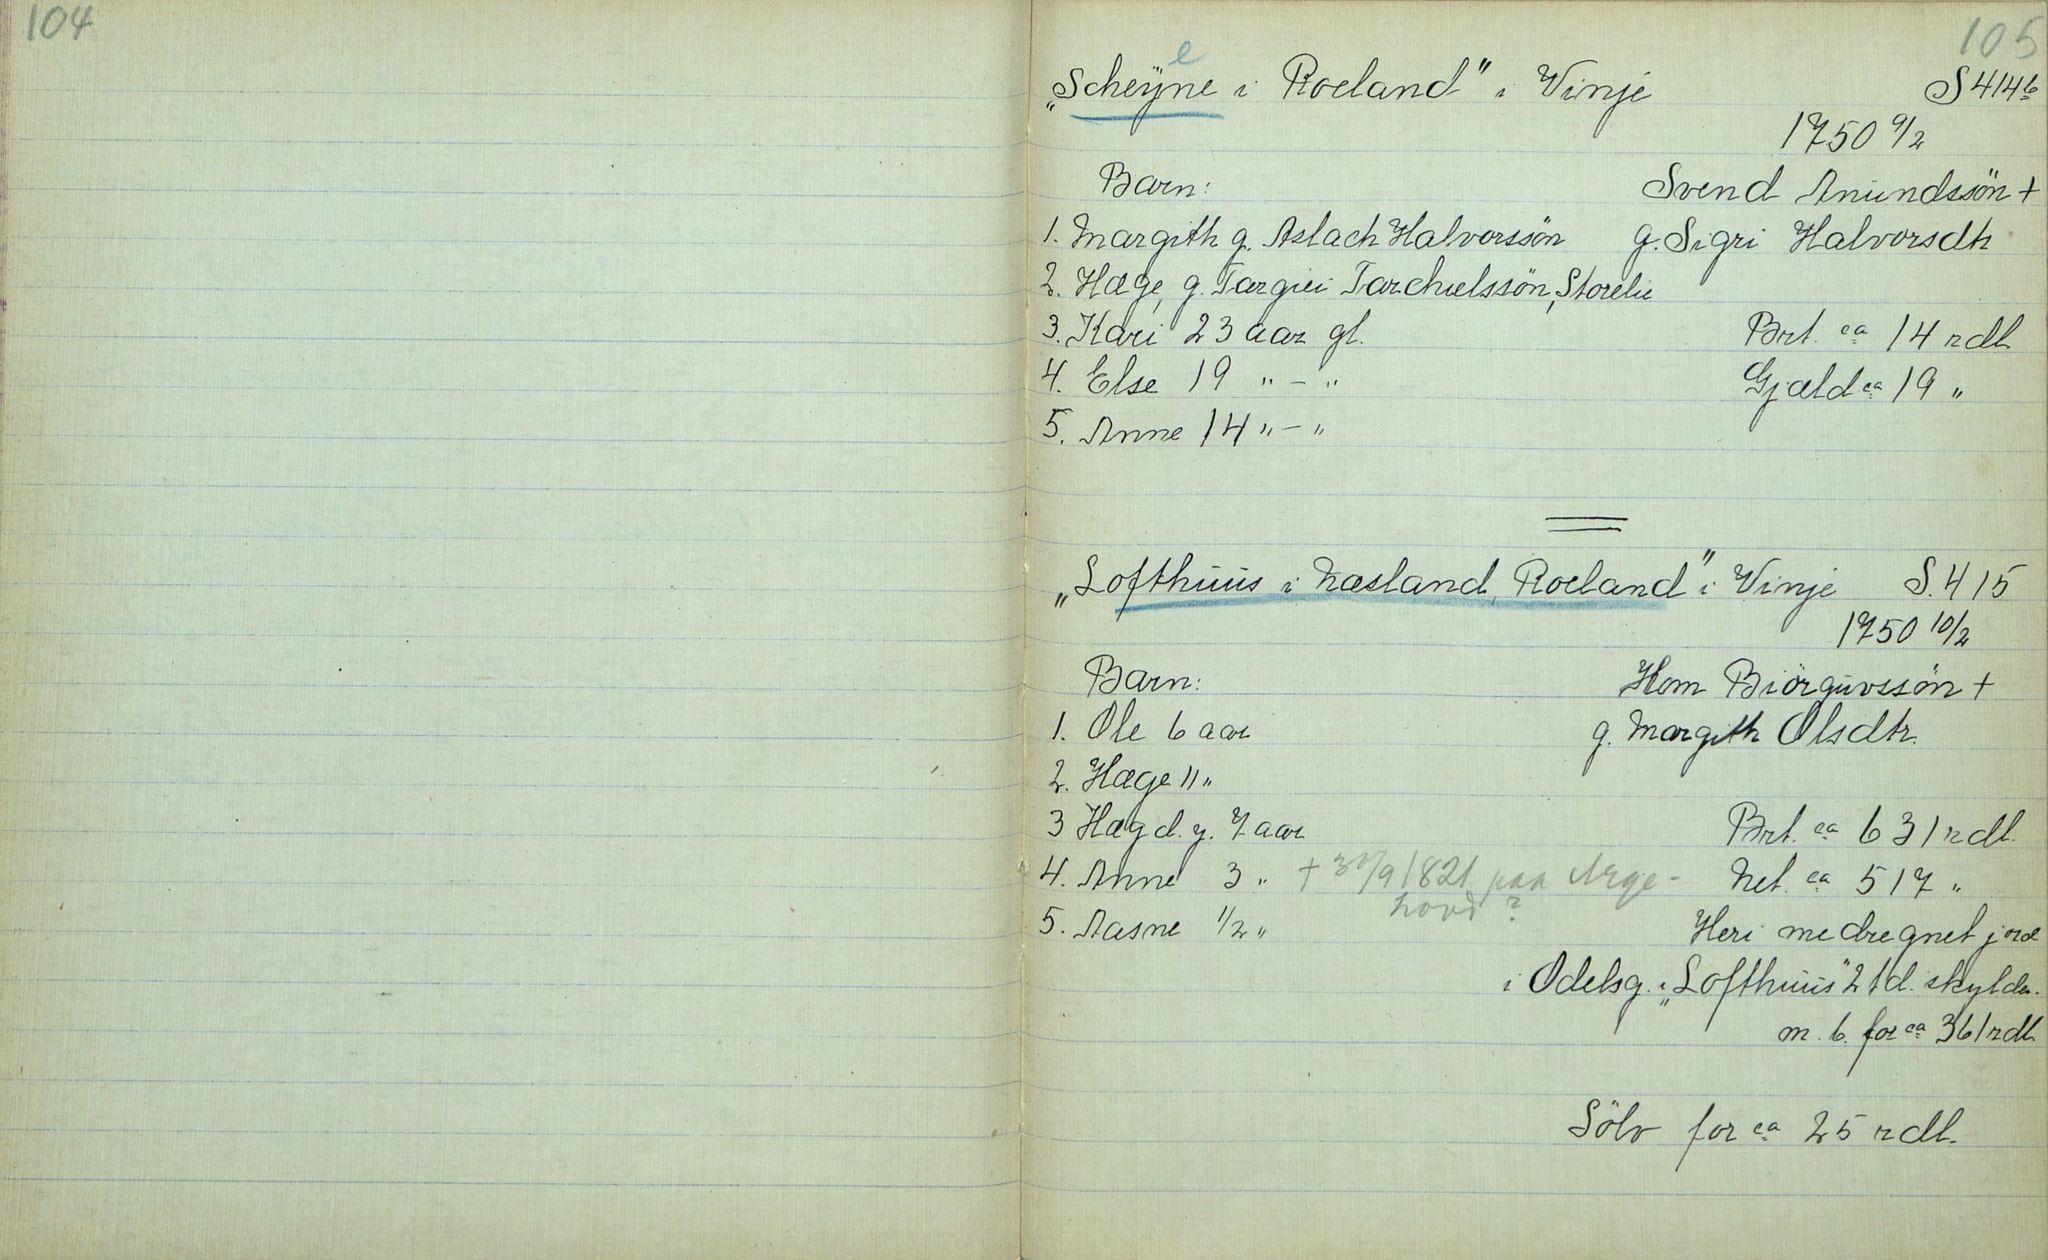 104
105
e
„Scheÿne i Roeland" i Vinje S 414 b
1750 9/2
Barn: Svend Anundssön +
1. Margith g. Aslach Halvorssön g. Sigri Halvorsdtr
2. Hæge, g. Targiei Tarchielssön, Storelie
3. Kari 23 aar gl. Brt. ca 14 rdl.
4. Else 19 " – " Gjæld ca 19 "
5. Anne 14 " – "
„Lofthuus i Næsland, Roeland" i Vinje S. 415
1750 10/2
Barn: Hom Biörguvssön +
1. Ole 6 aar g. Margith Olsdtr.
2. Hæge 11 "
3 Hæg d. y. 7 aar Brt. ca 631 rdl.
4. Anne 3 " + 3%9 1821 paa Arge- Net. ca 517 "
hovd ?
5. Aasne 1/2 " Heri medregnet jord
i Odelsg. „Lofthuus" 2 td. skylder
m. b. for ca 361 rdl.
Sölv for ca 25 rdl.